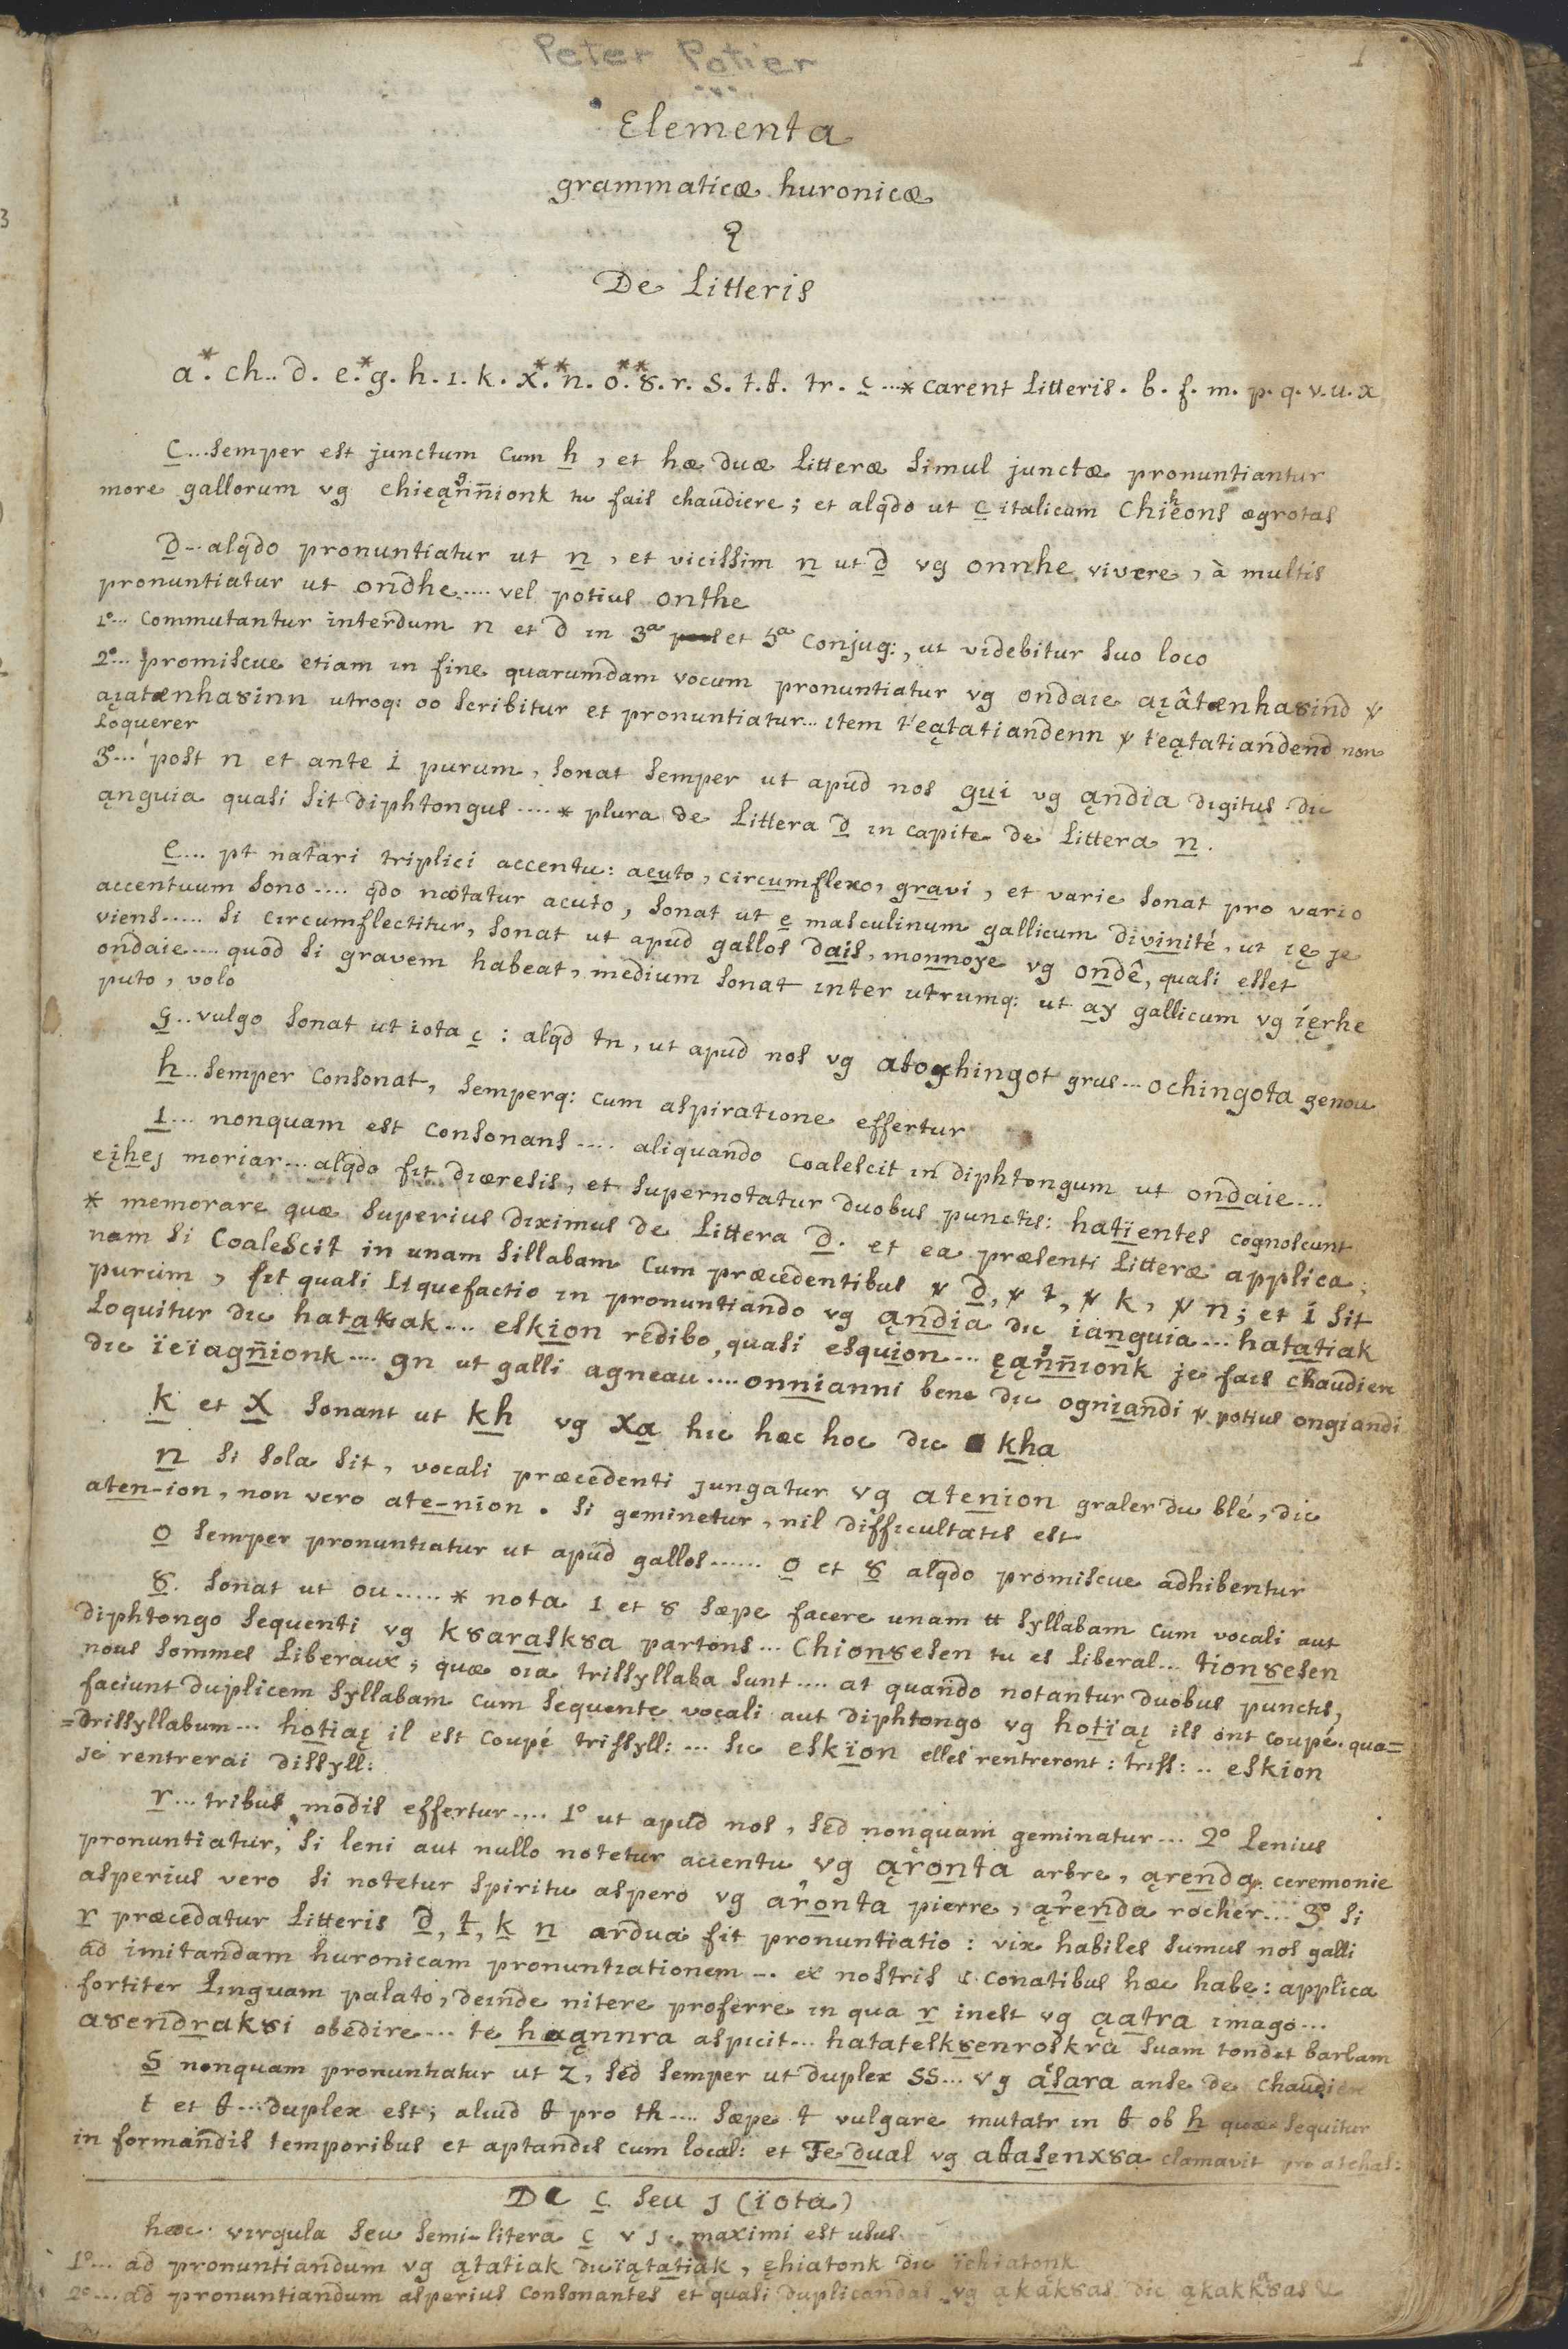 Peter Potier
1
Elementa
grammaticæ huronicæ
&
De Litteris
a*. ch.. d. e.* g. h. ı. k. x.** n. o.** 8. r. s. t. ŧ. tr. ς ...* carent Litteris. b. f. m. p. q. v. u. x
C... semper est junctum cum h, et hæ duæ litteræ simul junctæ pronuntiantur
more gallorum vg chieąn͂n͂ionk tu fais chaudiere; et alqdo ut c italicum chiheons ægrotas
D... alqdo pronuntiatur ut n, et vicissim n ut d vg onnhe vivere, à multis
pronuntiatur ut ondhe.... vel potius onthe
1º... commutantur interdum n et d in 3ª et 5ª conjug:, ut videbitur suo loco
2º... promiscue etiam in fine quarumdam vocum pronuntiatur vg ondaıe aįâtænha8ind v
aįatænhasinn utroq: oo scribitur et pronuntiatur... ıtem t'eątatiandenn v teątatiandend non
loquerer
3º... post n et ante i purum, sonat semper ut apud nos gui vg ąndia digitus dic
ąnguia quasi sit diphtongus.... * plura de Littera d ın capite de Littera n.
e.... pt natari triplici accentu: acuto, circumflexo, gravi, et varie sonat pro vario
accentuum sono.... qdo notatur acuto, sonat ut e masculinum gallicum divinité, ut ıę je
viens..... si cırcumflectitur, sonat ut apud gallos dais, monnoye vg ondê, quasi esset
ondaie.... quod si gravem habeat, medium sonat ınter utrumq: ut ay gallicum vg íęrhe
puto, volo
g.. vulgo sonat ut iota ς : alqd tn, ut apud nos vg atoghingot grus... ochingota genou
h.. semper consonat, semperq: cum aspiratıone effertur
ı... nonquam est consonans.... aliquando coalescit ın diphtongum ut ondaie...
eįhej moriar... alqdo fıt dıæresis, et supernotatur duobus punctıs: hatïentes cognoscunt
* memorare quæ superius dıximus de Littera d. et ea præsenti Litteræ applica;
nam si coalescit in unam sillabam cum præcedentibus v d, v t, v k, v n; et i sit
purum, fıt quasi lıquefactio ın pronuntiando vg ąndia dıc ianguia... hatatiak
loquitur dıc hatakak... eskion redibo, quasi esquion... ęąn͂n͂ıonk je fais chaudien
dıc ïeïagn͂ionk.... gn ut galli agneau.... onnianni bene dıc ogniandi v potius ongiandi
k et X sonant ut kh vg xa hıc hæc hoc dıc kha
n si sola sit, vocali præcedenti jungatur vg atenion graler du blé, dic
aten-ion, non vero ate-nion. si geminetur, nil difficultatıs est
o semper pronuntıatur ut apud gallos...... o et 8 alqdo promiscue adhibentur
8. sonat ut ou..... * nota ı et 8 sæpe facere unam syllabam cum vocali aut
diphtongo sequenti vg k8arask8a partons... Chion8esen tu es liberal... tion8esen
nous sommes Liberaux; quæ oıa trissyllaba sunt.... at quando notantur duobus punctıs,
faciunt duplicem syllabam cum sequente vocali aut diphtongo vg hotïaį ils ont coupé. qua=
=drissyllabum... hotiaį il est coupé trissyll:... sıc eskïon elles rentreront: trıss:.. eskion
je rentrerai dissyll:
r... tribus modis effertur.... 1º ut apud nos, sed nonquam geminatur... 2º lenius
pronuntiatur, si leni aut nullo notetur accentu vg ąr̓onta arbre, ąrenda ceremonie
asperius vero si notetur spiritu aspero vg ar̔onta pierre, ąr̔enda rocher... 3º si
r præcedatur Litteris d, t, k n ardua fit pronuntiatio: vix habiles sumus nos galli
ad imitandam huronicam pronuntıationem... ex nostris conatibus hæc habe: applica
fortiter linguam palato, deinde nitere proferre ın qua r inest vg ąatra ımago...
a8endrak8i obedire... te haąnnra aspıcit... hatatesk8enroskra suam tondet barbam
S nonquam pronuntıatur ut z, sed semper ut duplex ss... vg ásara anse de chaudiere
t et ŧ... duplex est; aliud ŧ pro th.... sæpe t vulgare mutatr ın ŧ ob h quæ sequitur
in formandis temporibus et aptandıs cum local: et Te dual vg aŧasenx8a clamavit pro atehas:
De ς seu j (ïota)
hæc vırgula seu semi-litera ς v j. maximi est usus
1º... ad pronuntiandum vg ątatiak dıc ïątatiak, ęhiatonk dıc ïehiatonk
2º... ad pronuntiandum asperius consonantes et quasi duplicandas vg ąkak8as dic ąkakk8as